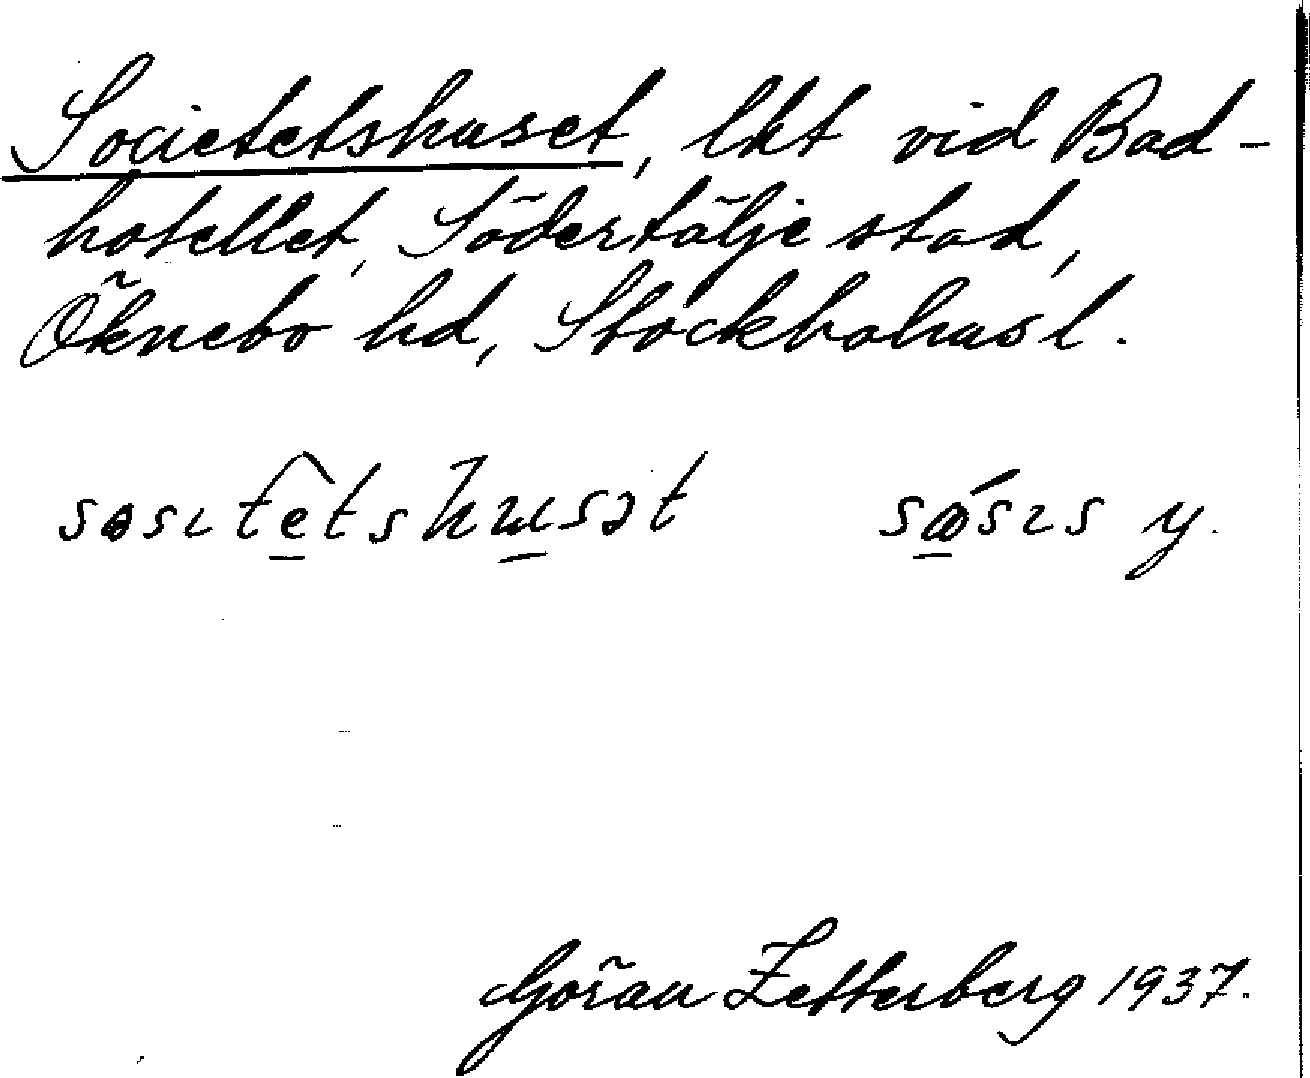 Societetshuset, lkt vid Bad-
hotellet, Södertälje stad,
Öknebo hd, Stockholms l.
sosıtêtshusət sósıs y.
Göran Zetterberg 1937.